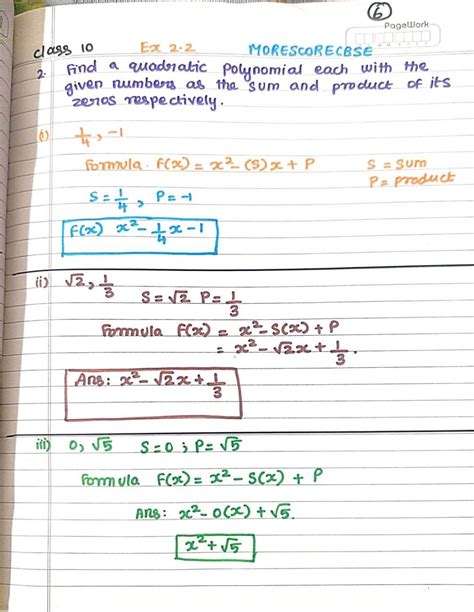 6
PageWork
class 10 Ex 2.2 MORESCORECBSE
2. Find a quadratic Polynomial each with the
given numbers as the sum and product of its
zeros respectively.
(i) 1/4, -1
Formula. f(x) = x² - (S)x + P S = Sum
P = Product
S = 1/4, P = -1
f(x) x² - 1/4 x - 1
(ii) √2, 1/3 S = √2 P = 1/3
Formula f(x) = x² - S(x) + P
= x² - √2x + 1/3.
Ans: x² - √2x + 1/3
iii) 0, √5 S = 0 ; P = √5
Formula f(x) = x² - S(x) + P
Ans: x² - 0(x) + √5.
x² + √5